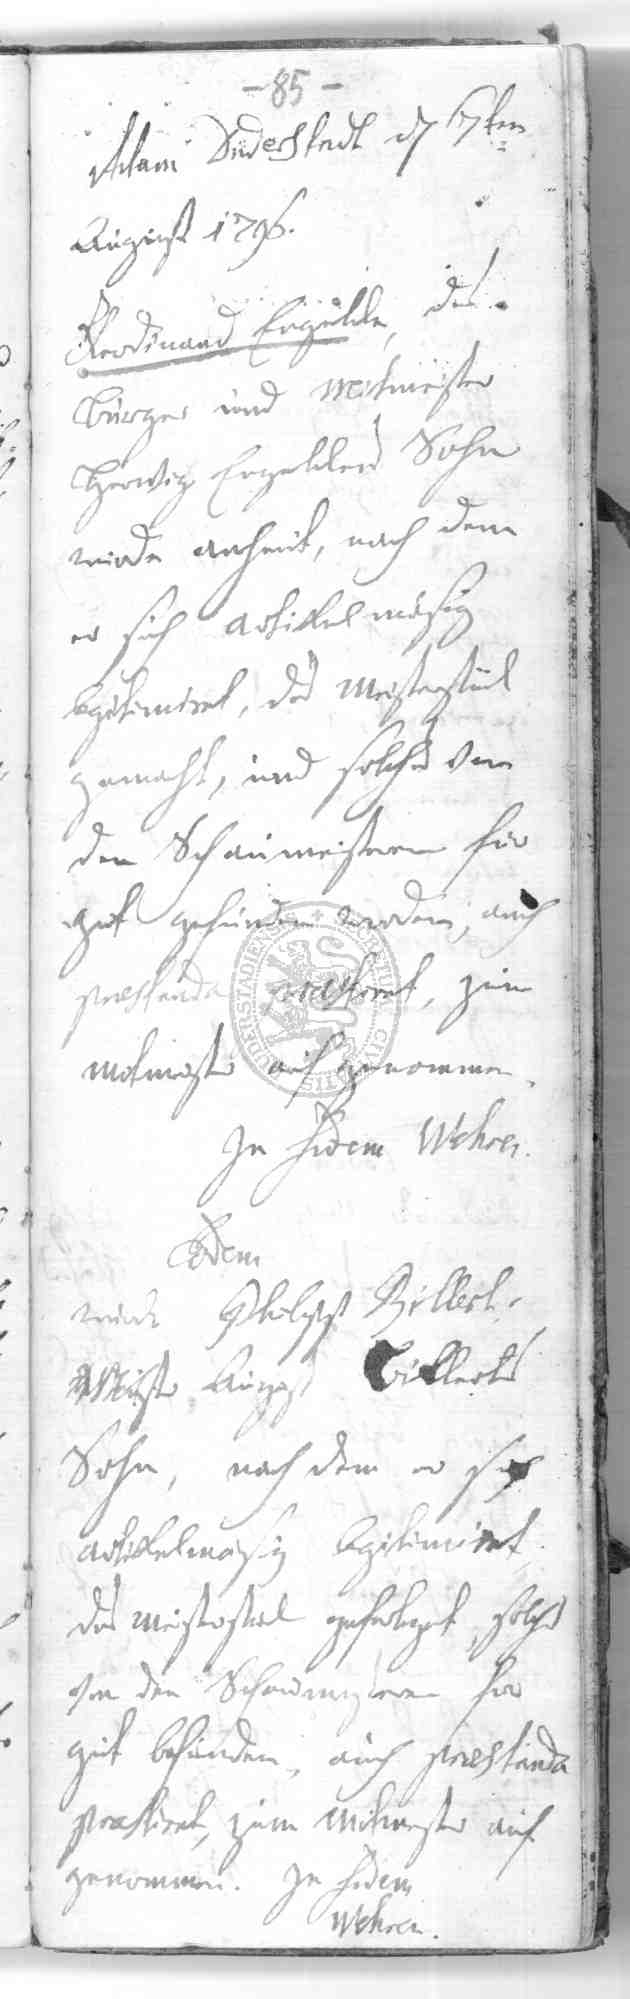 - 85 -
Actum Duderstadt d 17ten
August 1796.
Ferdinand Engelke, des
Bürger und Mitmeister
Herwig Engelkes Sohn
wurde anheut, nach dem
er sich artikelmäsig
legitimiret, das Meisterstück
gemacht, und solches von
den Schaumeisteren für
gut gefunden worden, auch
praestanda praestiret, zum
Mitmeister aufgenommen
In fidem Wehren.
Eodem
wurde Hillebrecht
Meister August
Sohn, nach dem er sich
artikelmäsig legitimiret,
das Meisterstück gefertiget, solches
von den Schaumeisteren für
gut befunden, auch praestanda
praestiret, zum Mitmeister auf
genommen. In fidem
Wehren.